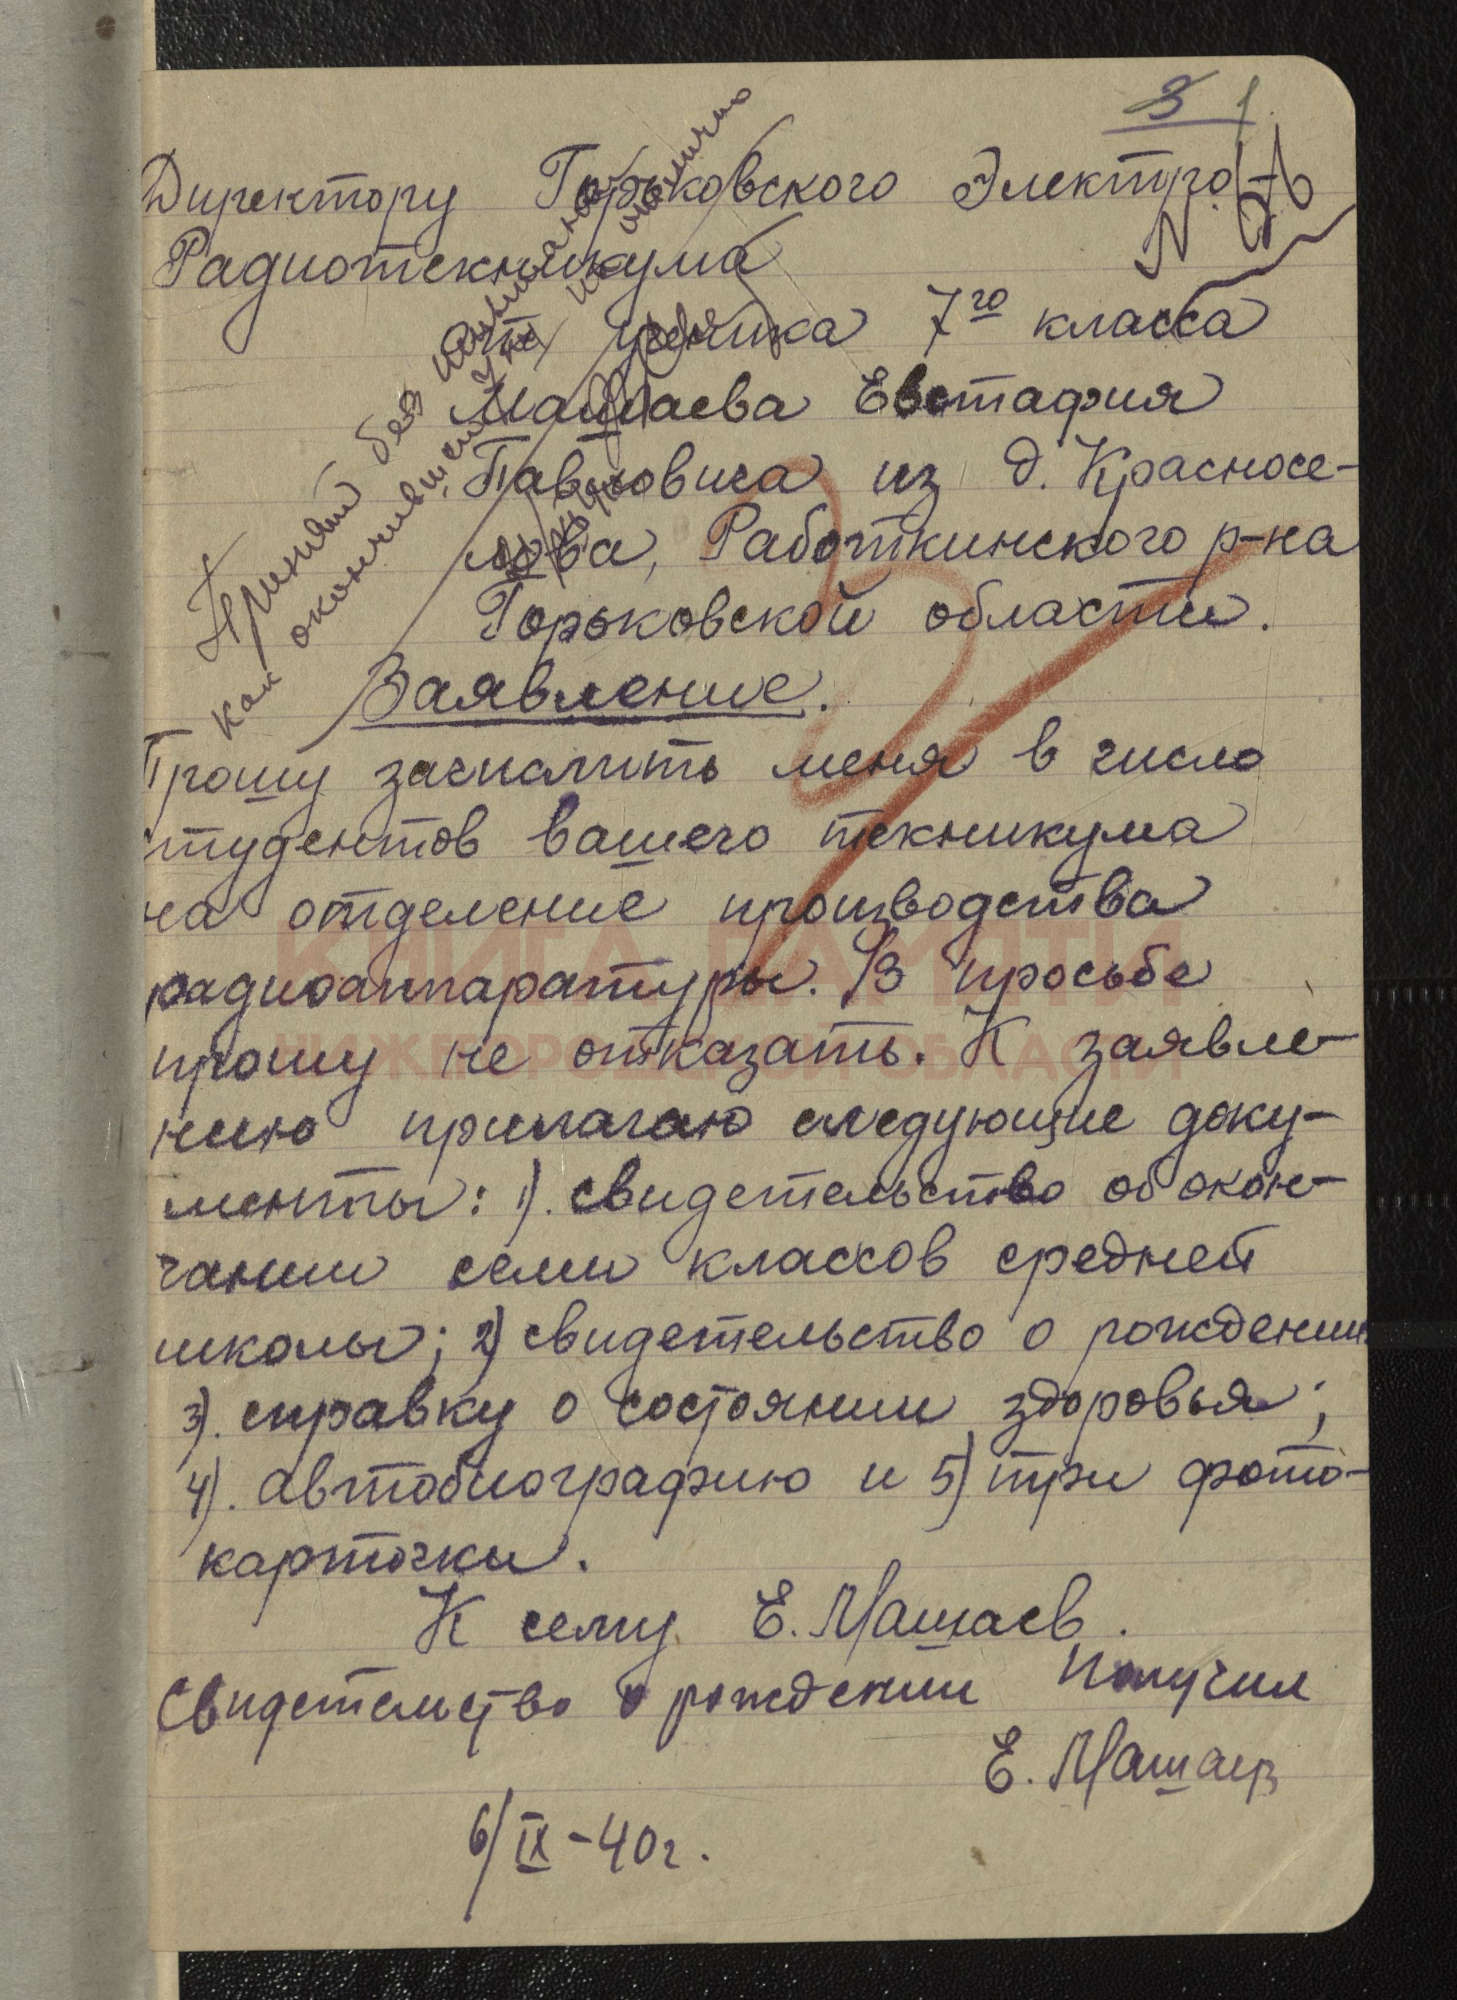 3 1
Директору Горьковского Электро-
Радиотехникума
от ученика 7го класса
Машаева Евстафия
Павловича из д. Красносе-
лова, Работкинского р-на
Горьковской области.
Заявление.
Прошу зачислить меня в число
студентов вашего техникума
на отделение производства
радиоаппаратуры. В просьбе
прошу не отказать. К заявле-
нию прилагаю следующие доку-
менты: 1). свидетельство об окон-
чании семи классов средней
школы; 2) свидетельство о рождении
3). справку о состоянии здоровья;
4). автобиографию и 5) три фото-
карточки.
К сему Е. Машаев.
Свидетельство о рождении получил
Е. Машаев
6/IX-40г.
Принят без испытаний
как окончивший на отлично
КНИГА ПАМЯТИ
НИЖЕГОРОДСКОЙ ОБЛАСТИ